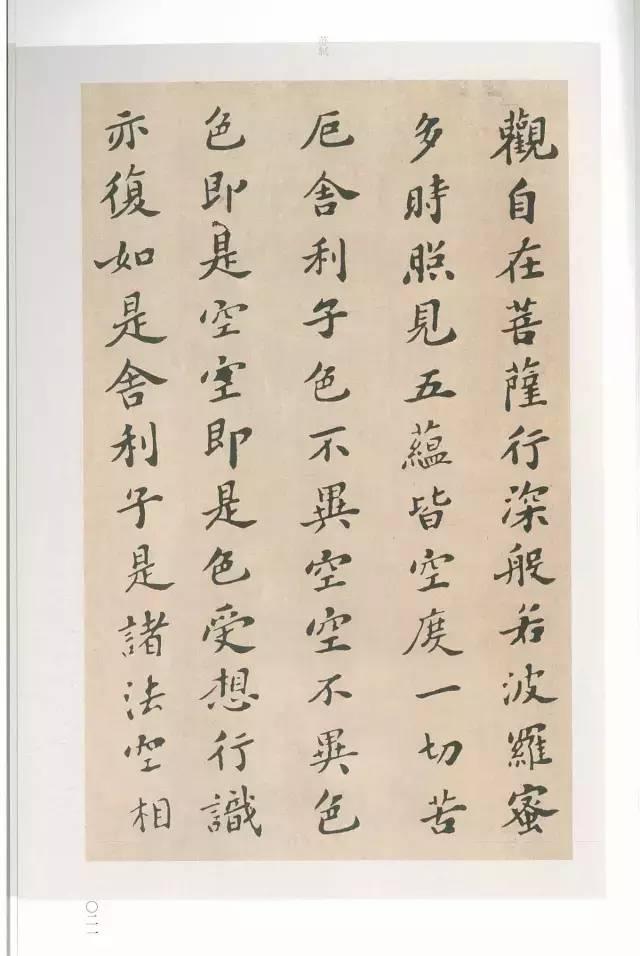 觀自在菩薩行深般若波羅蜜
多時照見五蘊皆空度一切苦
厄舍利子色不異空空不異色
色即是空空即是色受想行識
亦復如是舍利子是諸法空相
〇二一